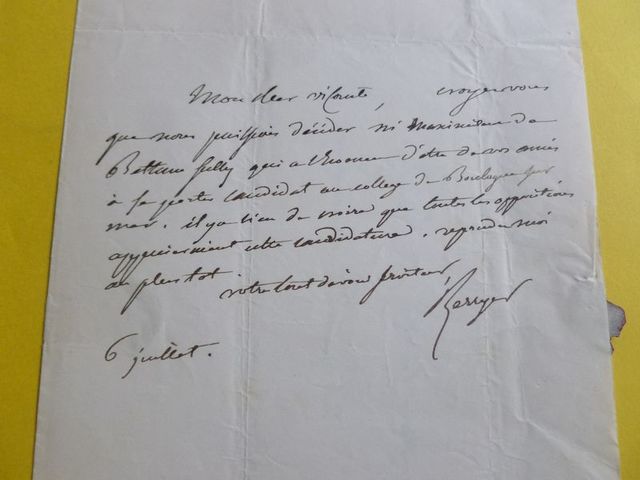 Mon cher vicomte, croyez vous
que nous puissions décider Mr Maximilien de
Bethune Sully qui a l'honneur d'être de vos amis
à se porter candidat au college de Boulogne sur
mer. il y a lieu de croire que toutes les oppositions
appuieraient cette candidature. repondez moi
au plus tot
votre tout dévoué serviteur
Berryer
6 juillet.